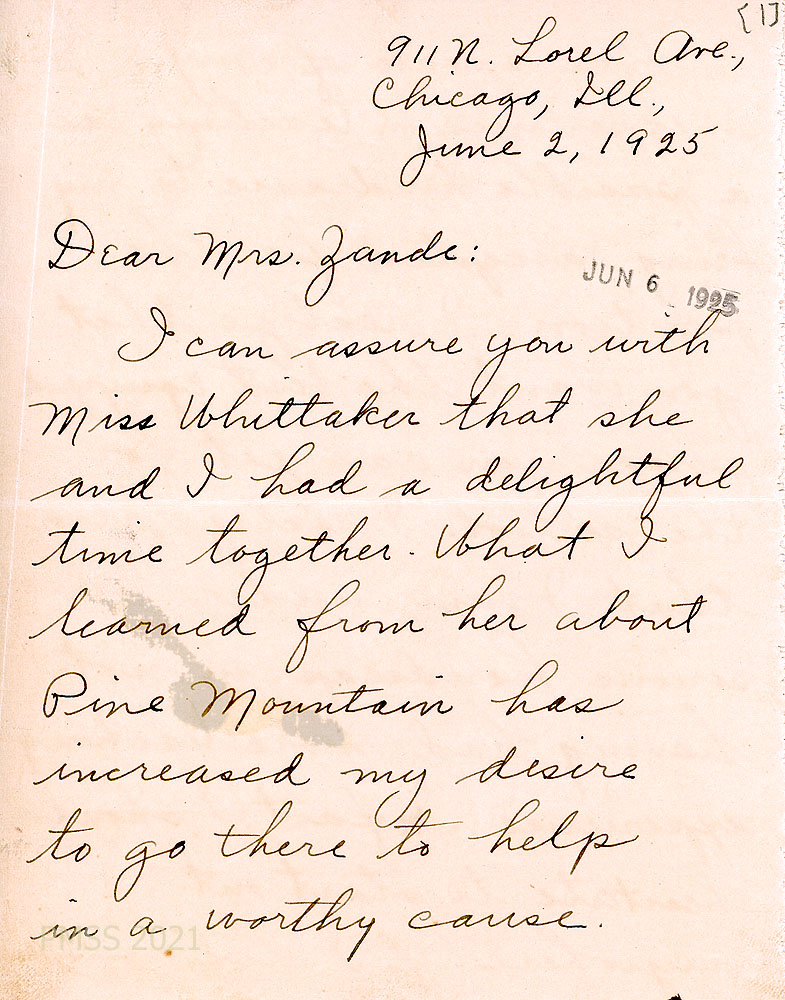 [1]
911 N. Lorel Ave.,
Chicago, Ill.,
June 2, 1925
Dear Mrs. Zande:
JUN 6 1925
I can assure you with
Miss Whittaker that she
and I had a delightful
time together. What I
learned from her about
Pine Mountain has
increased my desire
to go there to help
in a worthy cause.
PMSS 2021